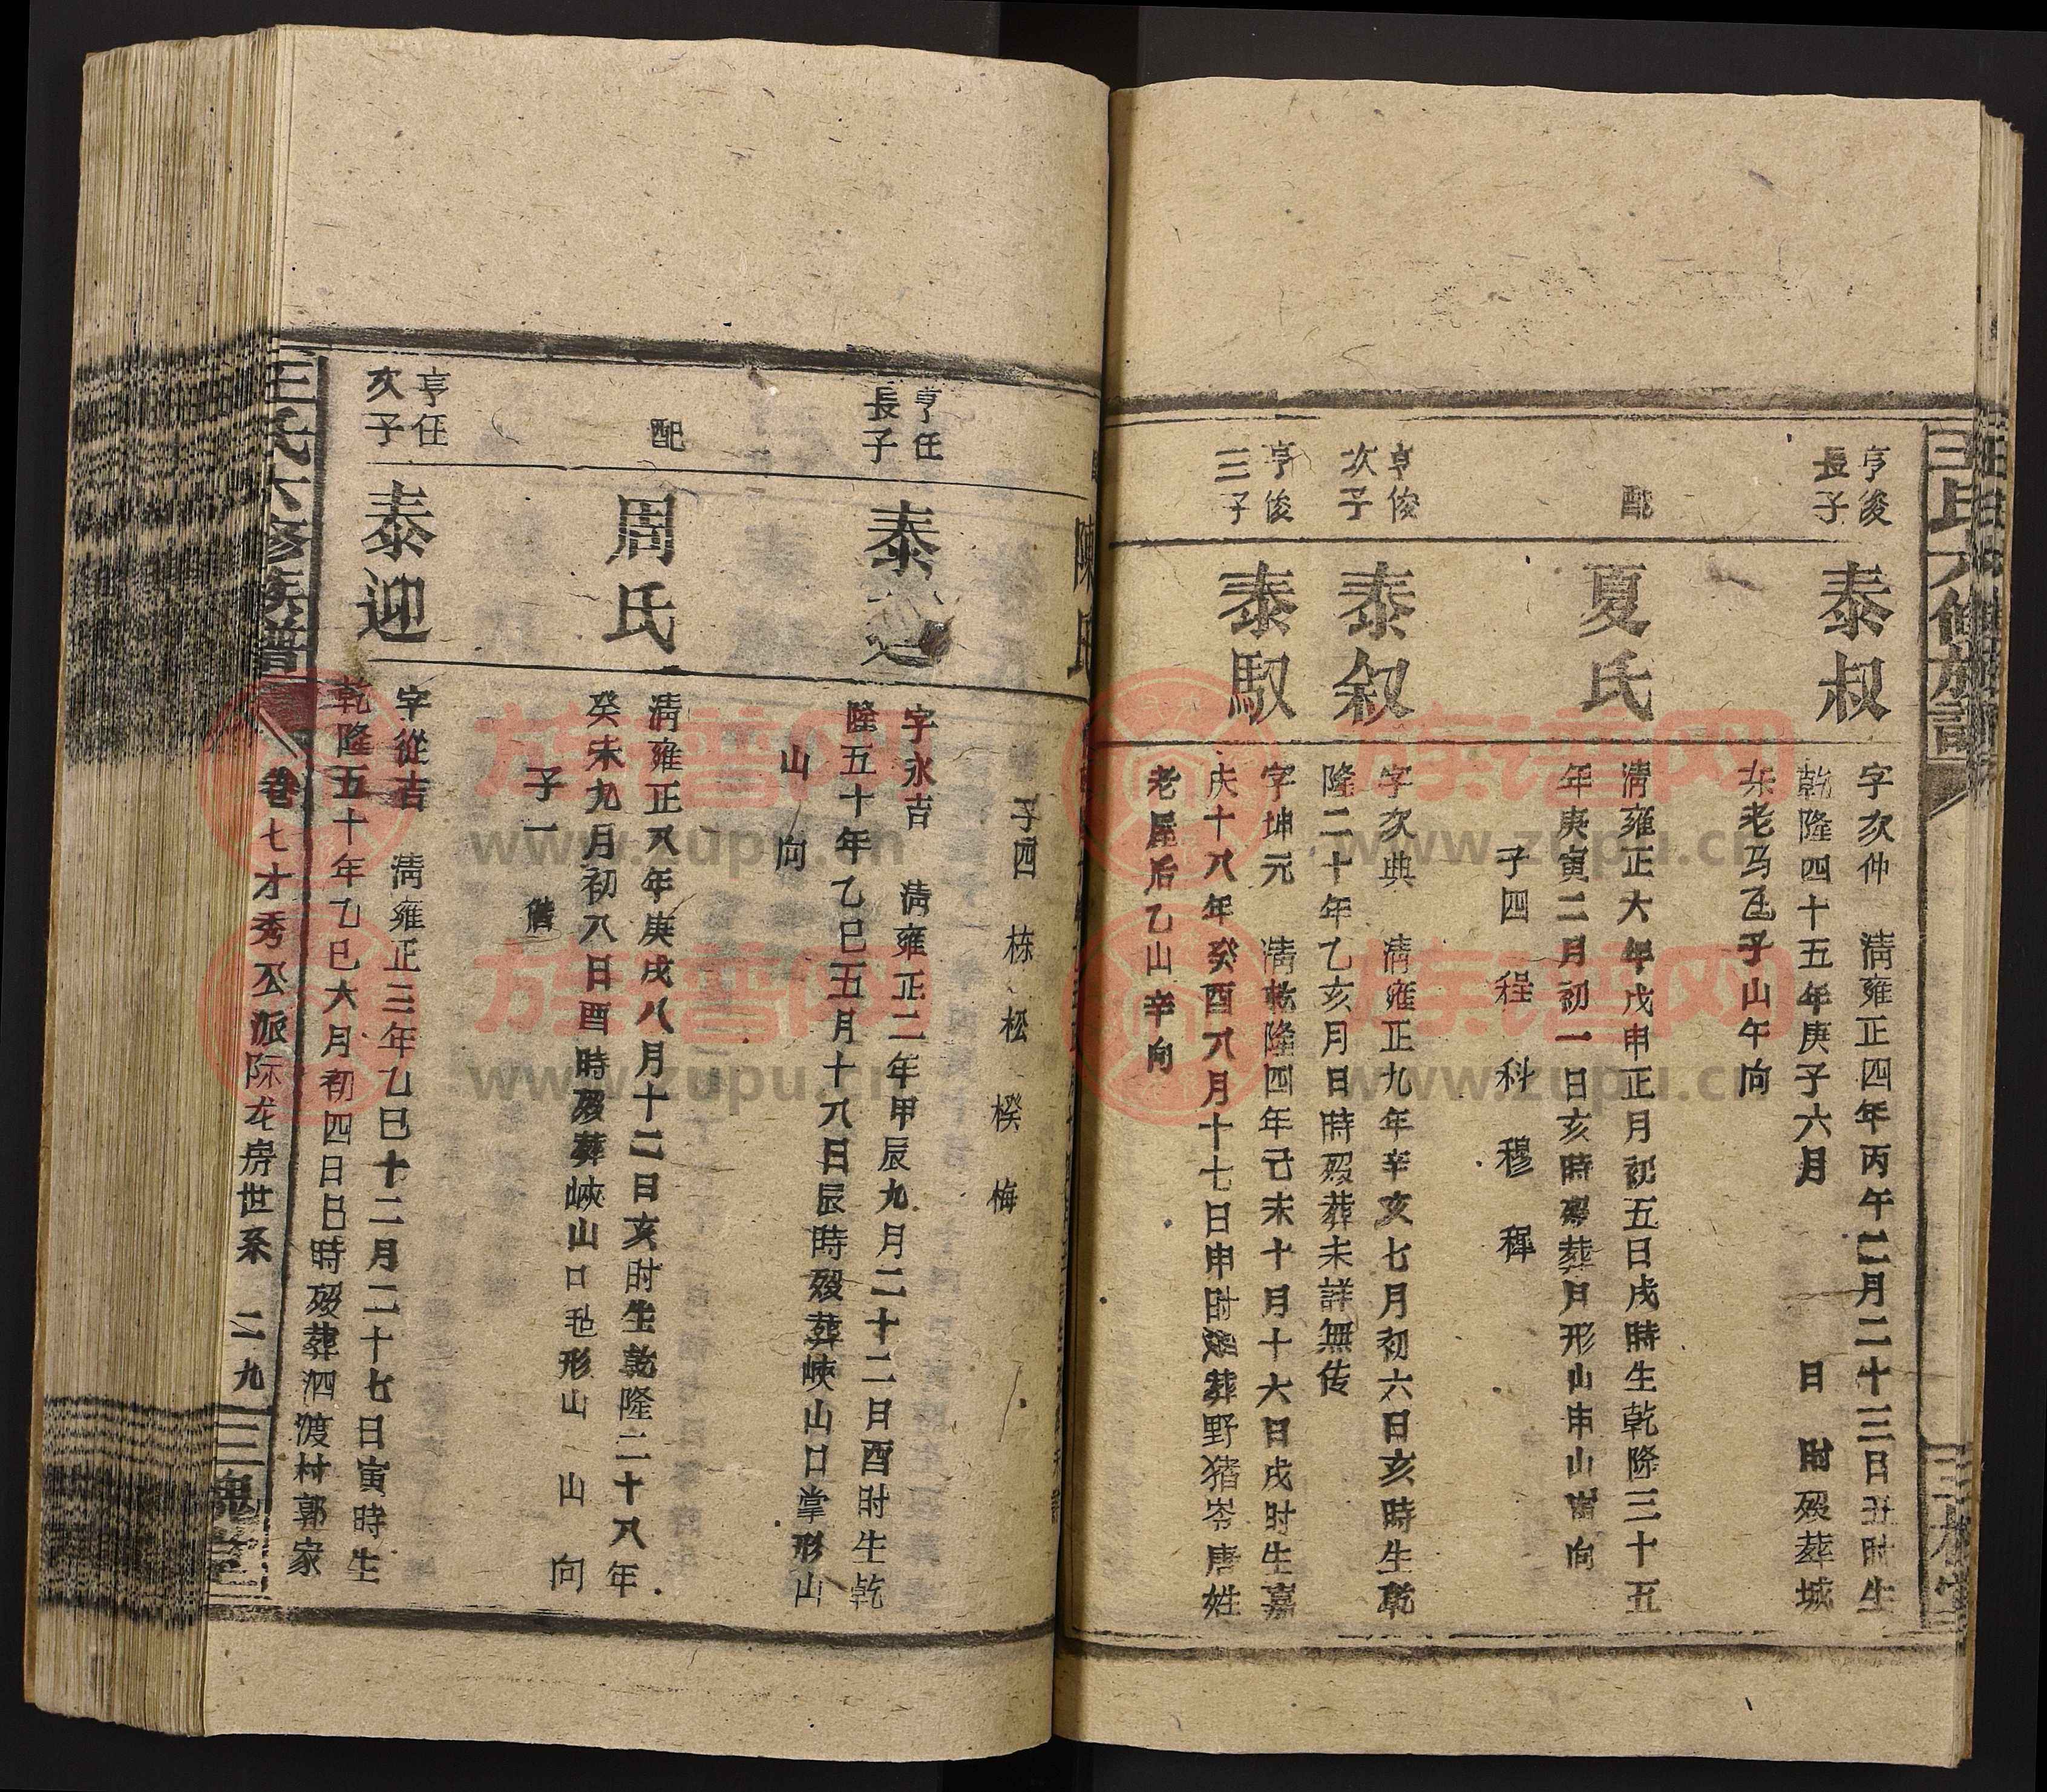 王氏六修族譜
三槐堂
亨俊
長子
泰叔
字次仲　淸雍正四年丙午二月二十三日丑时生
乾隆四十五年庚子六月　日　时殁葬城
东老马　子山午向
配
夏氏
淸雍正六年戊申正月初五日戌時生乾隆三十五
年庚寅二月初一日亥時殁葬月形山申山寅向
子四　程　科　穆　稺
亨俊
次子
泰叙
字次典　淸雍正九年辛亥七月初六日亥時生乾
隆二十年乙亥月日時殁葬未詳無传
亨俊
三子
泰馭
字坤元　淸乾隆四年己未十月十六日戌时生嘉
庆十八年癸酉八月十七日申时殁葬野猪岺唐姓
老屋后乙山辛向
陳氏
子四　栋　松　楑　梅
亨任
長子
泰
字永吉　淸雍正二年甲辰九月二十二日酉时生乾
隆五十年乙巳五月十八日辰時殁葬峽山口掌形山
山向
配
周氏
淸雍正八年庚戌八月十二日亥时生乾隆二十八年
癸未九月初八日酉時殁葬峽山口　形山　山　向
子一　偕
亨任
次子
泰迎
字從吉　淸雍正三年乙巳十二月二十七日寅時生
乾隆五十年乙巳六月初四日巳時殁葬泗渡村郭家
王氏六修族譜
卷七才秀公派际龙房世系　二九
三槐堂
族谱网
www.zupu.cn
族谱网
www.zupu.cn
族谱网
www.zupu.cn
族谱网
www.zupu.cn